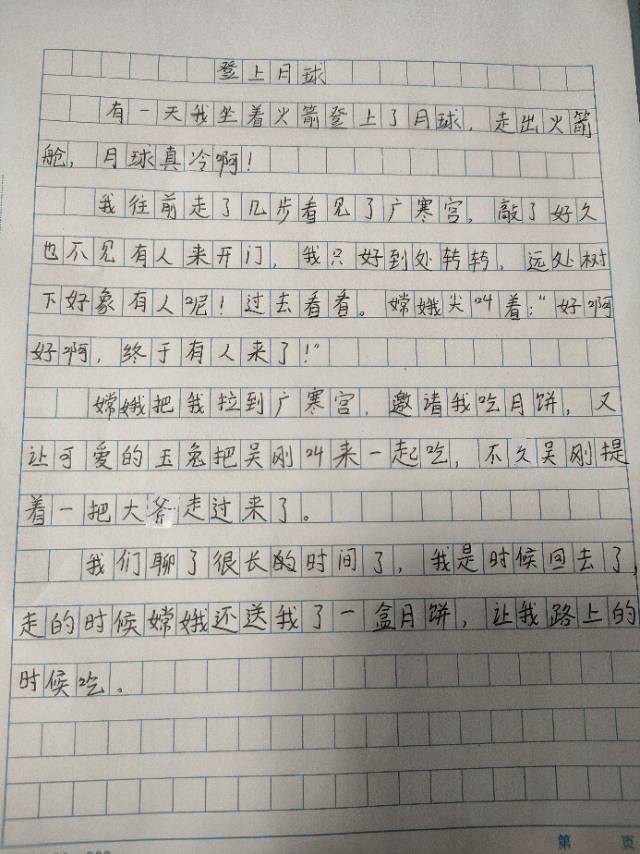 登上月球
有一天我坐着火箭登上了月球，走出火箭
舱，月球真冷啊！
我往前走了几步看见了广寒宫，敲了好久
也不见有人来开门，我只好到处转转，远处树
下好象有人呢！过去看看。嫦娥尖叫着：“好啊
好啊，终于有人来了！”
嫦娥把我拉到广寒宫，邀请我吃月饼，又
让可爱的玉兔把吴刚叫来一起吃，不久吴刚提
着一把大斧走过来了。
我们聊了很长的时间了，我是时候回去了，
走的时候嫦娥还送我了一盒月饼，让我路上的
时候吃。
第 页